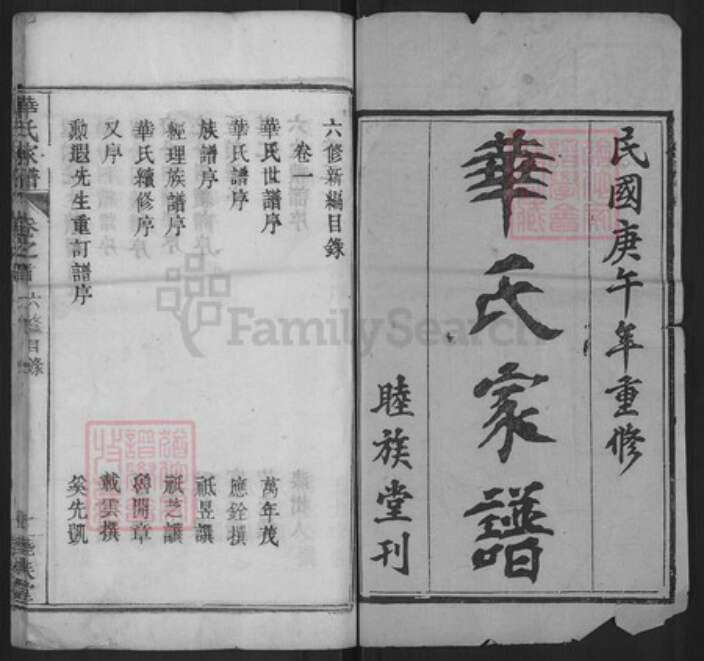 民國庚午年重修
華氏家譜
睦族堂刊
六修新編目錄
卷一
華氏世譜序 萬年茂
華氏譜序 應銓撰
族譜序 祇昱譔
經理族譜序 祇芝譔
華氏續修序 魯開章
又序 載雲撰
勳遐先生重訂譜序 奚先凱
華氏家譜 卷之首 六修目錄
FamilySearch